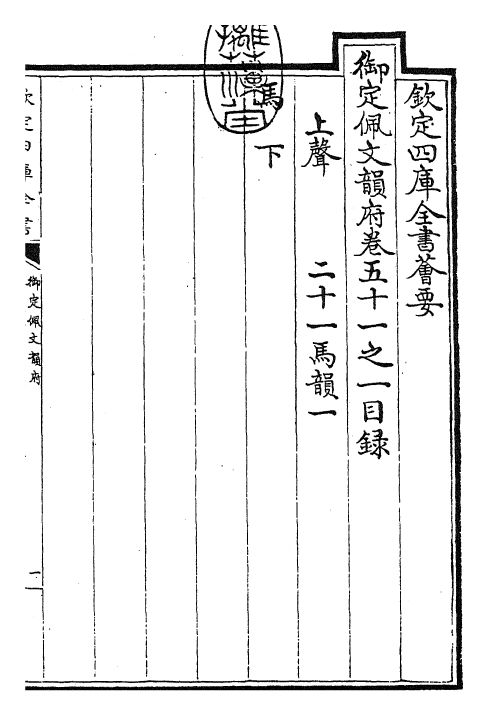 欽定四庫全書薈要
御定佩文韻府卷五十一之一目録
上聲　二十一馬韻一
馬　下
欽定四庫全書
御定佩文韻府
一